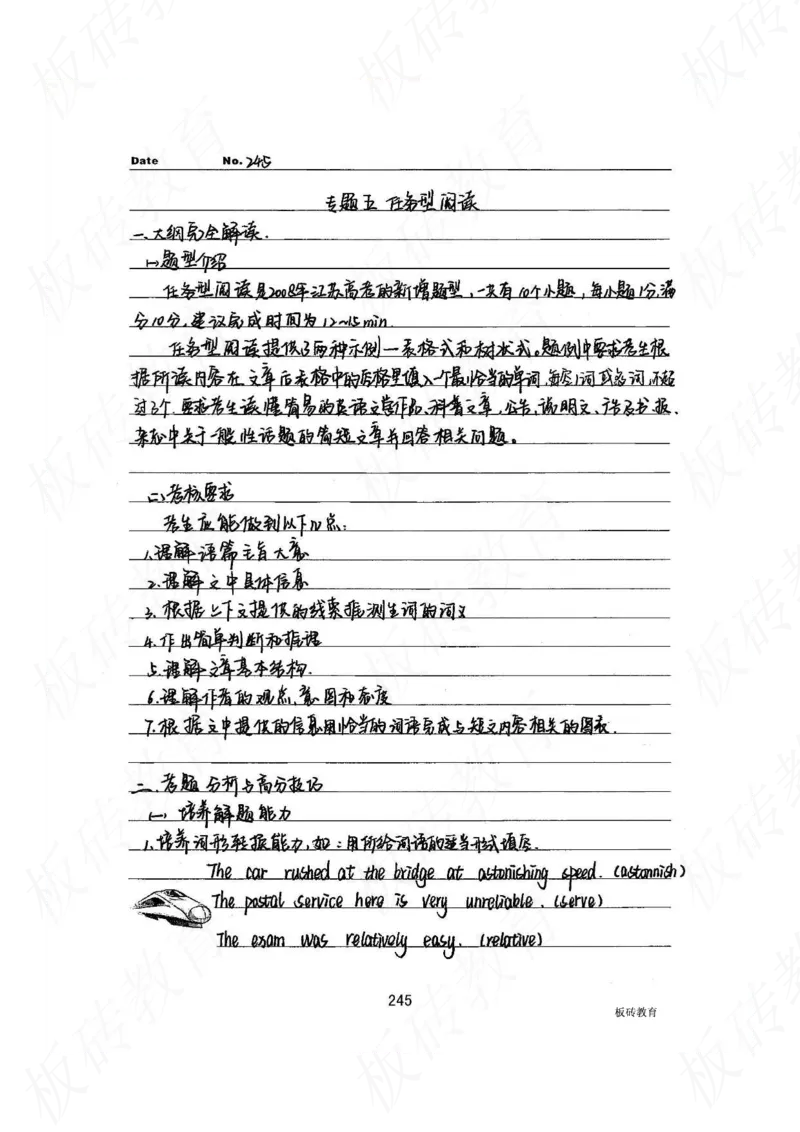 Date No. 245
专题五 任务型阅读
一、大纲完全解读.
(一)题型介绍
任务型阅读是2008年江苏高考的新增题型，一共有10个小题，每小题1分,满
分10分,建议完成时间为12~15min.
任务型阅读提供了两种示例一表格式和树状式。题例中要求考生根
据所读内容在文章后表格中的空格里填入一个最恰当的单词,每空1词或多词,不超
过3个.要求考生读懂简易的英语文学作品,科普文章,公告,说明文、广告及书、报、
杂志中关于一般性话题的简短文章并回答相关问题。
(二)考核要求
考生应能做到以下几点:
1.理解语篇主旨大意
2.理解文中具体信息
3.根据上下文提供的线索推测生词的词义
4.作出简单判断和推理
5.理解文章基本结构.
6.理解作者的观点、意图和态度
7.根据文中提供的信息用恰当的词语完成与短文内容相关的图表.
二.考题分析与高分技巧
(一) 培养解题能力
1.培养词形转换能力,如:用所给词语的适当形式填空.
The car rushed at the bridge at astonishing speed. (astonnish)
The postal service here is very unreliable. (serve)
The exam was relatively easy. (relative)
245
板砖教育